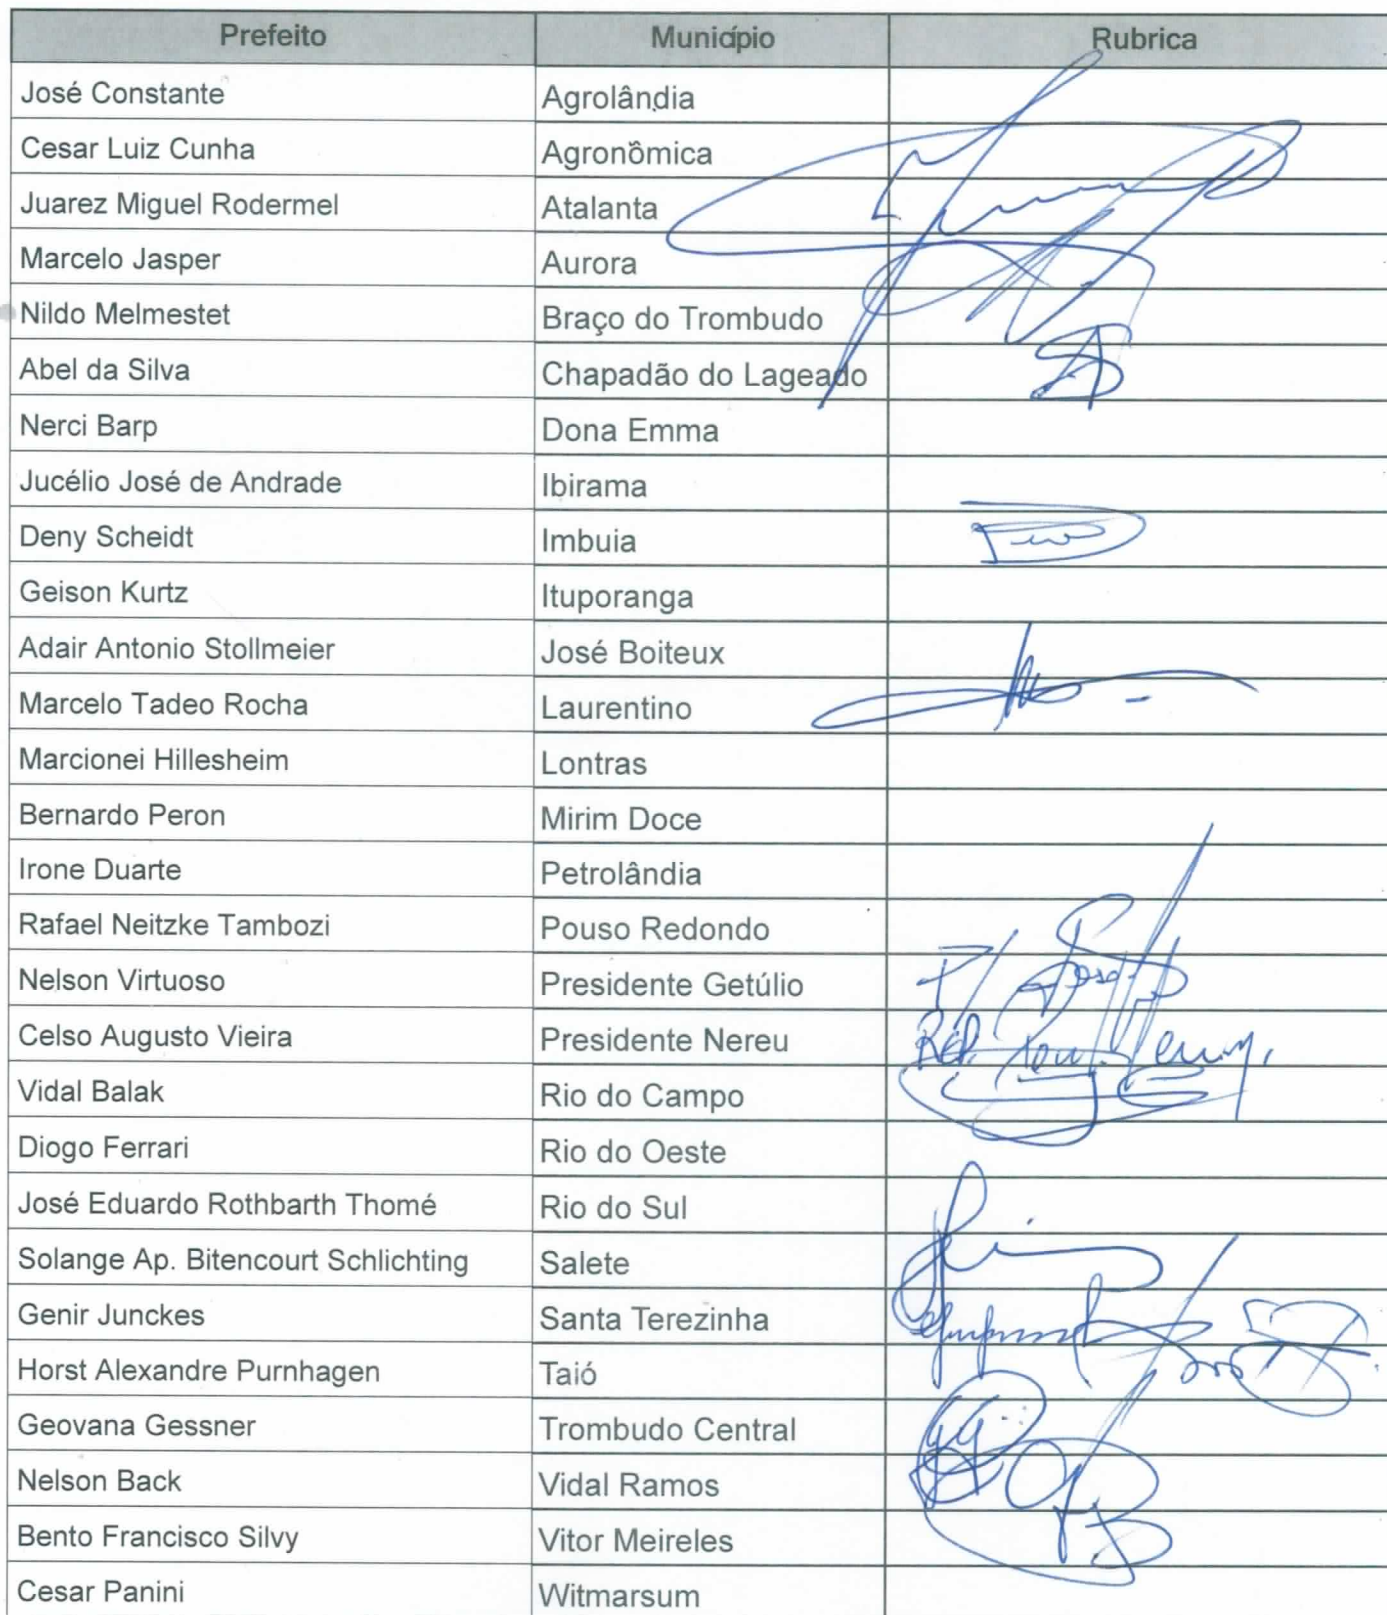 Prefeito Município Rubrica
José Constante Agrolândia
Cesar Luiz Cunha Agronômica
Juarez Miguel Rodermel Atalanta
Marcelo Jasper Aurora
Nildo Melmestet Braço do Trombudo
Abel da Silva Chapadão do Lageado
Nerci Barp Dona Emma
Jucélio José de Andrade Ibirama
Deny Scheidt Imbuia
Geison Kurtz Ituporanga
Adair Antonio Stollmeier José Boiteux
Marcelo Tadeo Rocha Laurentino
Marcionei Hillesheim Lontras
Bernardo Peron Mirim Doce
Irone Duarte Petrolândia
Rafael Neitzke Tambozi Pouso Redondo
Nelson Virtuoso Presidente Getúlio P/
Celso Augusto Vieira Presidente Nereu
Vidal Balak Rio do Campo
Diogo Ferrari Rio do Oeste
José Eduardo Rothbarth Thomé Rio do Sul
Solange Ap. Bitencourt Schlichting Salete
Genir Junckes Santa Terezinha
Horst Alexandre Purnhagen Taió
Geovana Gessner Trombudo Central
Nelson Back Vidal Ramos
Bento Francisco Silvy Vitor Meireles
Cesar Panini Witmarsum